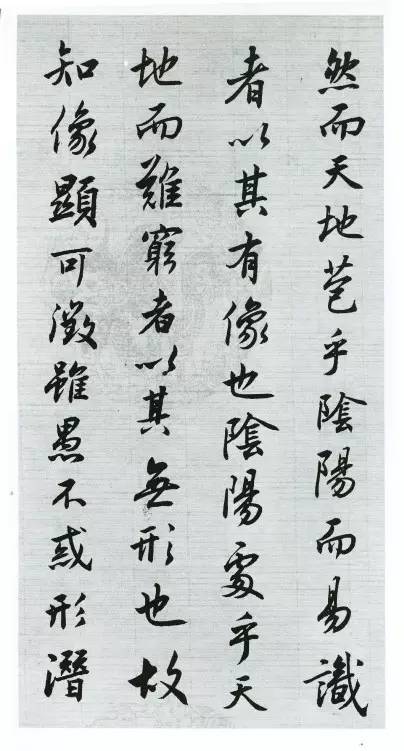 然而天地苞乎陰陽而易識
者以其有像也陰陽處乎天
地而難窮者以其無形也故
知像顯可徵雖愚不惑形潛